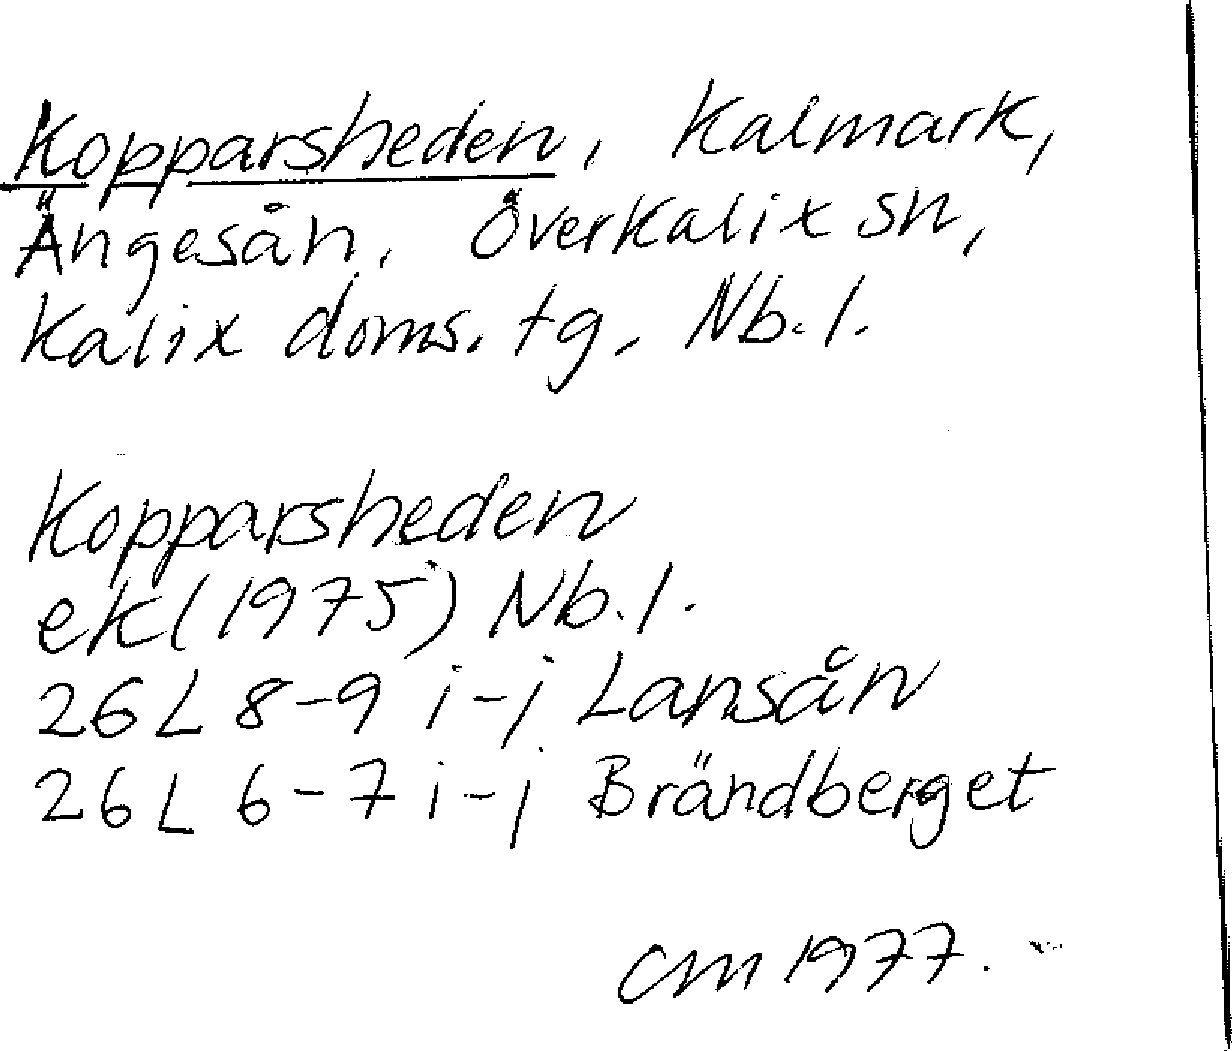 Kopparsheden, Kalmark,
Ängesån, Överkalix sn,
Kalix doms. tg. Nb.l.
Kopparsheden
ek (1975) Nb.l.
26L 8-9 i-j Lansån
26L 6-7 i-j Brändberget
CM 1977.